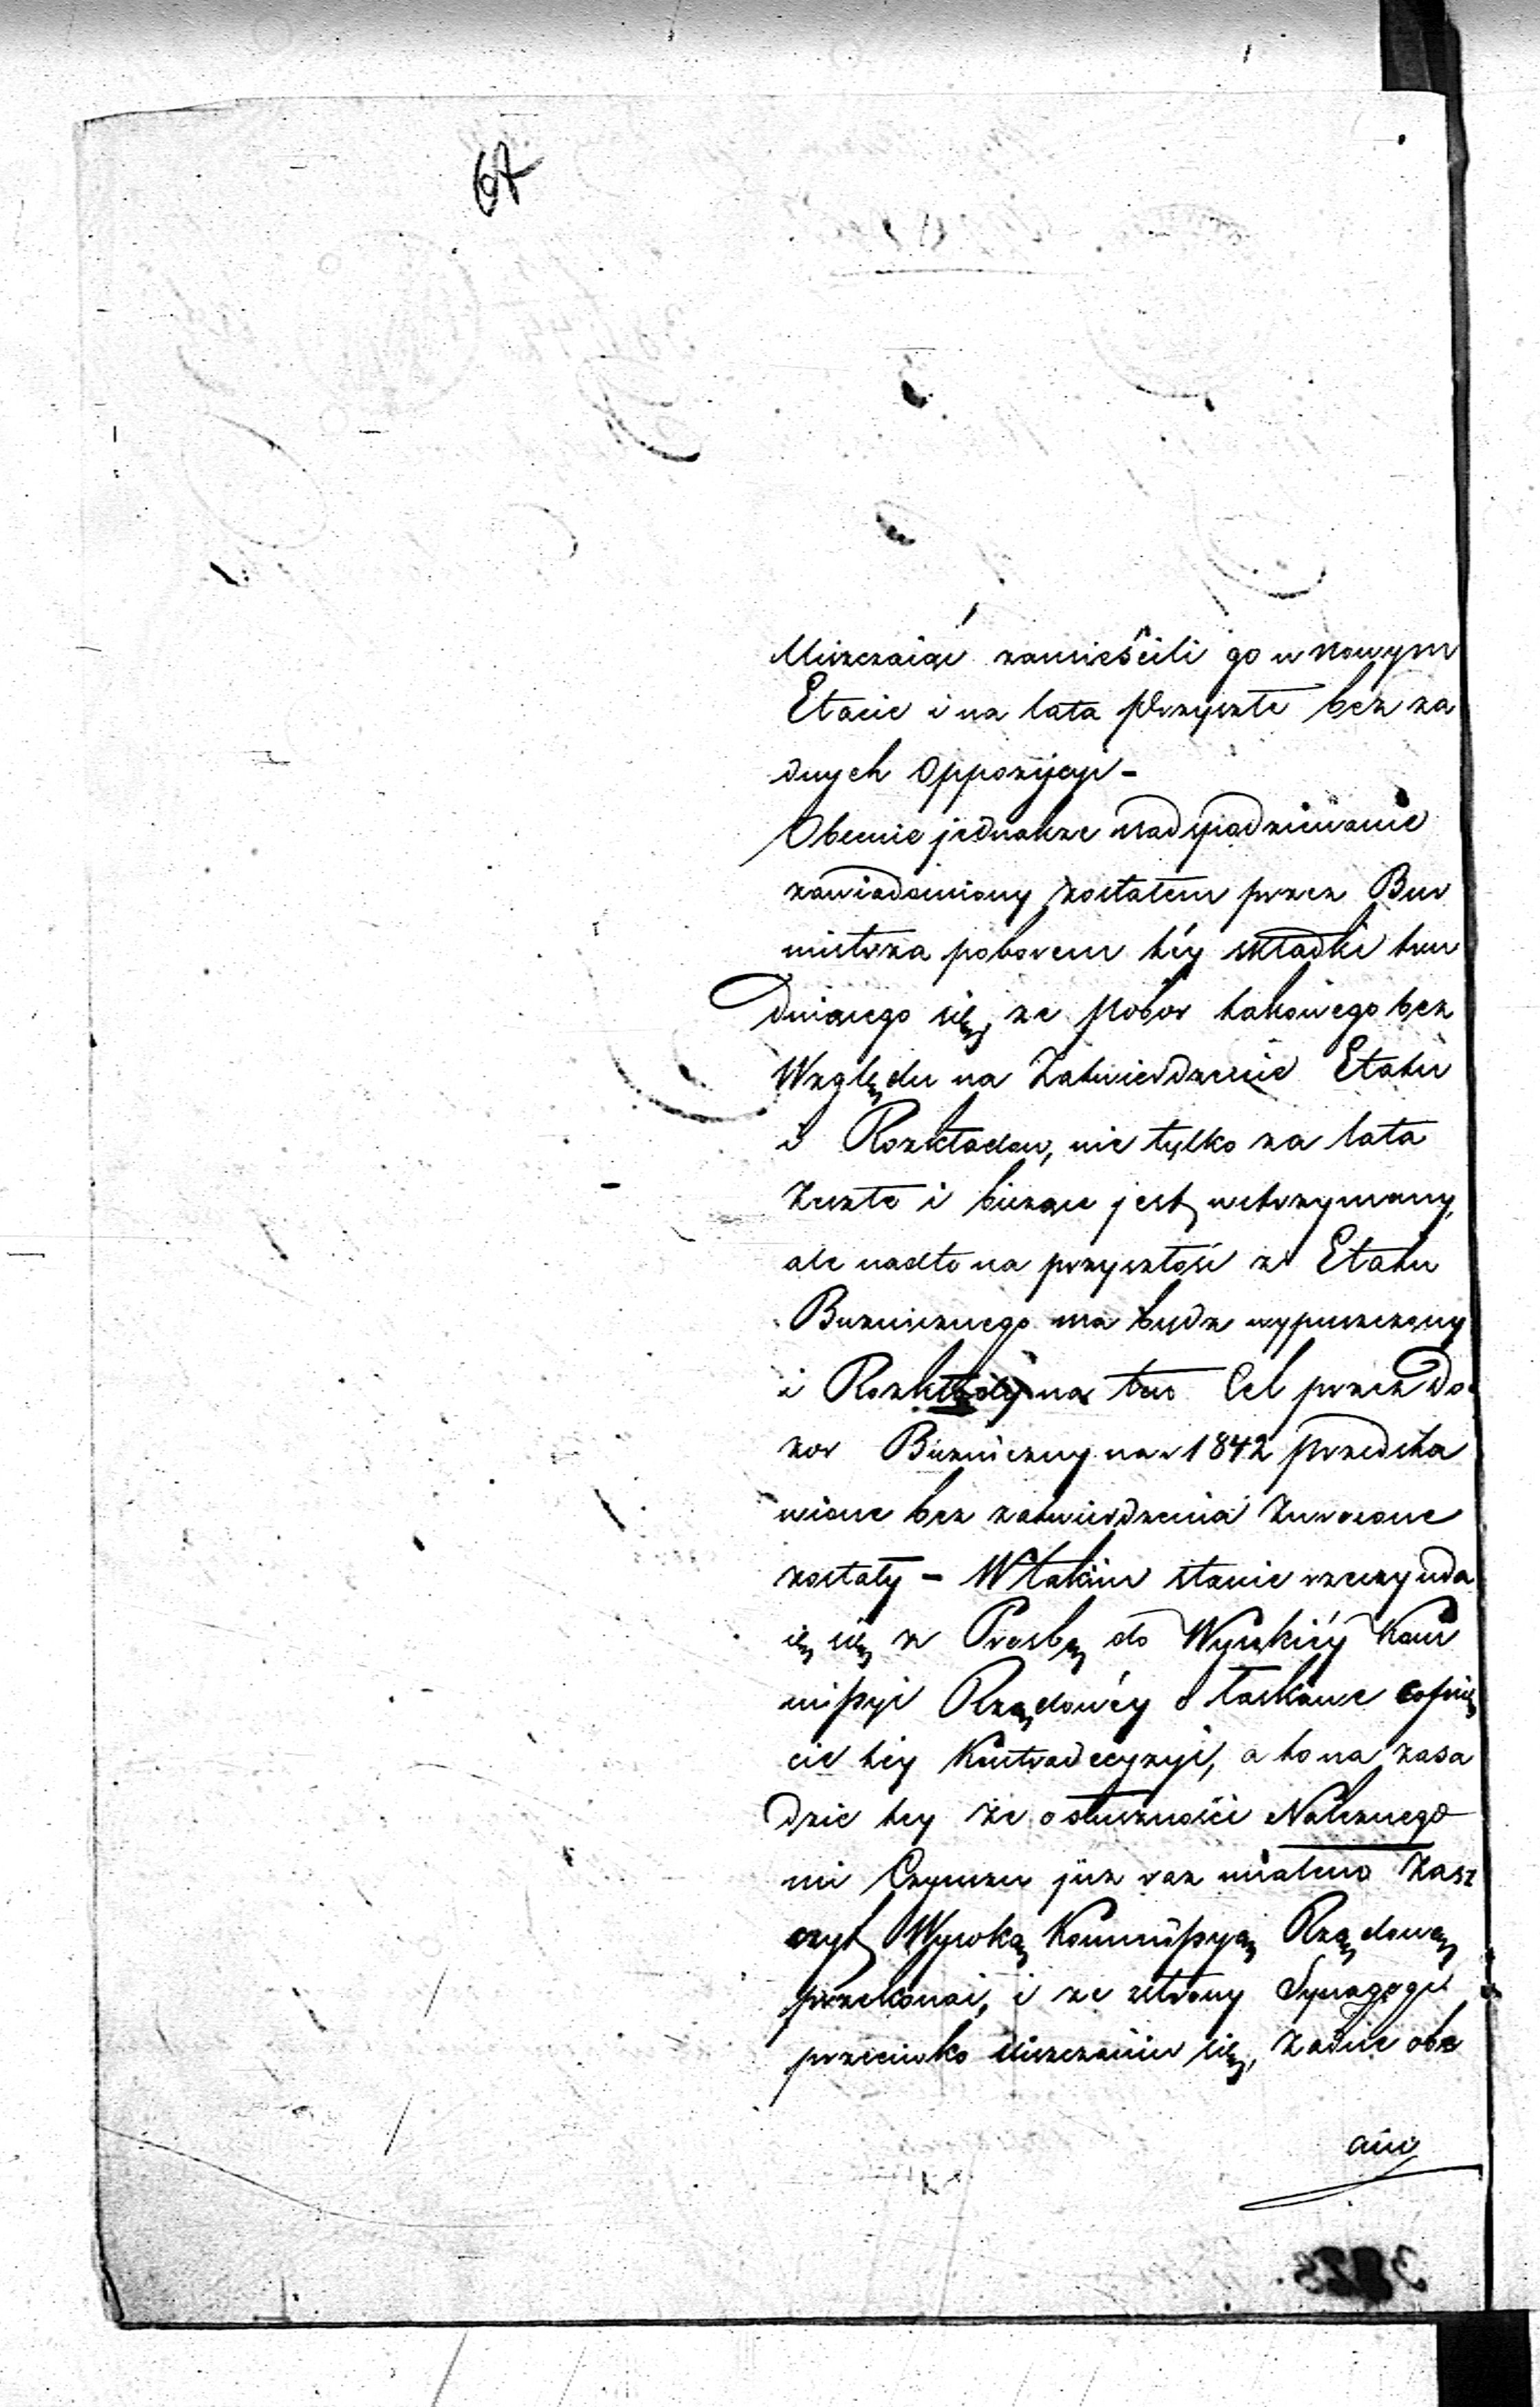 67
Uiszczaiąc zamieścili go w nowym
Etacie i na lata Przyszłe bez ża
dnych Oppozycyi -
Obecnie jednakże nadspodziewanie
zawiadomiony zostałem przez Bur
mistrza poborem téy składki tru
dniącego się, że Pobór takowego bez
Względu na Zatwierdzenie Etatu
i Rozkładow, nie tylko za lata
Zeszłe i bieżące jest wstrzymany,
ale nadto na przyszłość z Etatu
Bużnicznego ma bydz wypuszczony
i Rozkłady na ten Cel przez Do
zor Bużniczny na r 1842 przedsta
wione bez zatwierdzenia Zwrocone
zostały - W takim stanie rzeczy uda
ię się z Prosbą do Wysokiéy Kom
missyi Rządowéy o łaskawe cofnię
cie téy Kontradecyzyi, a to na zasa
dzie tey że o słuszności Należnego
mi Czynszu już raz miałem Zasz
czyt Wysoką Kommissyą Rządową
przekonać, i ze strony Synagogi
przeciwko Uiszczaniu się, żadne obz
aiw